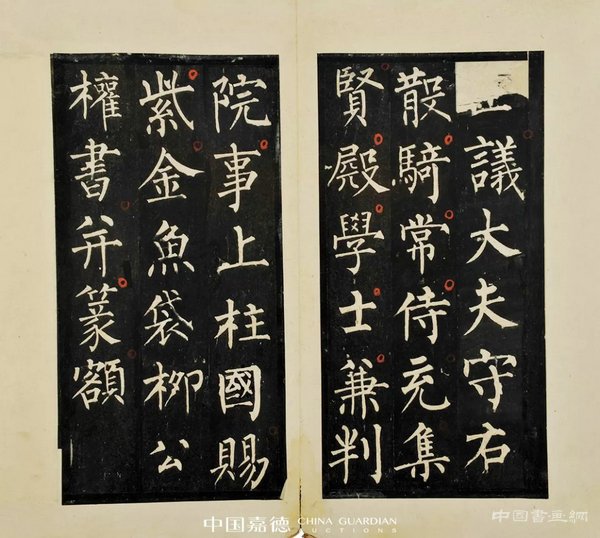 議大夫守右
散騎常侍充集
賢殿學士兼判
院事上柱國賜
紫金魚袋柳公
權書并篆額
中国嘉德 CHINA GUARDIAN AUCTIONS
中国书画网